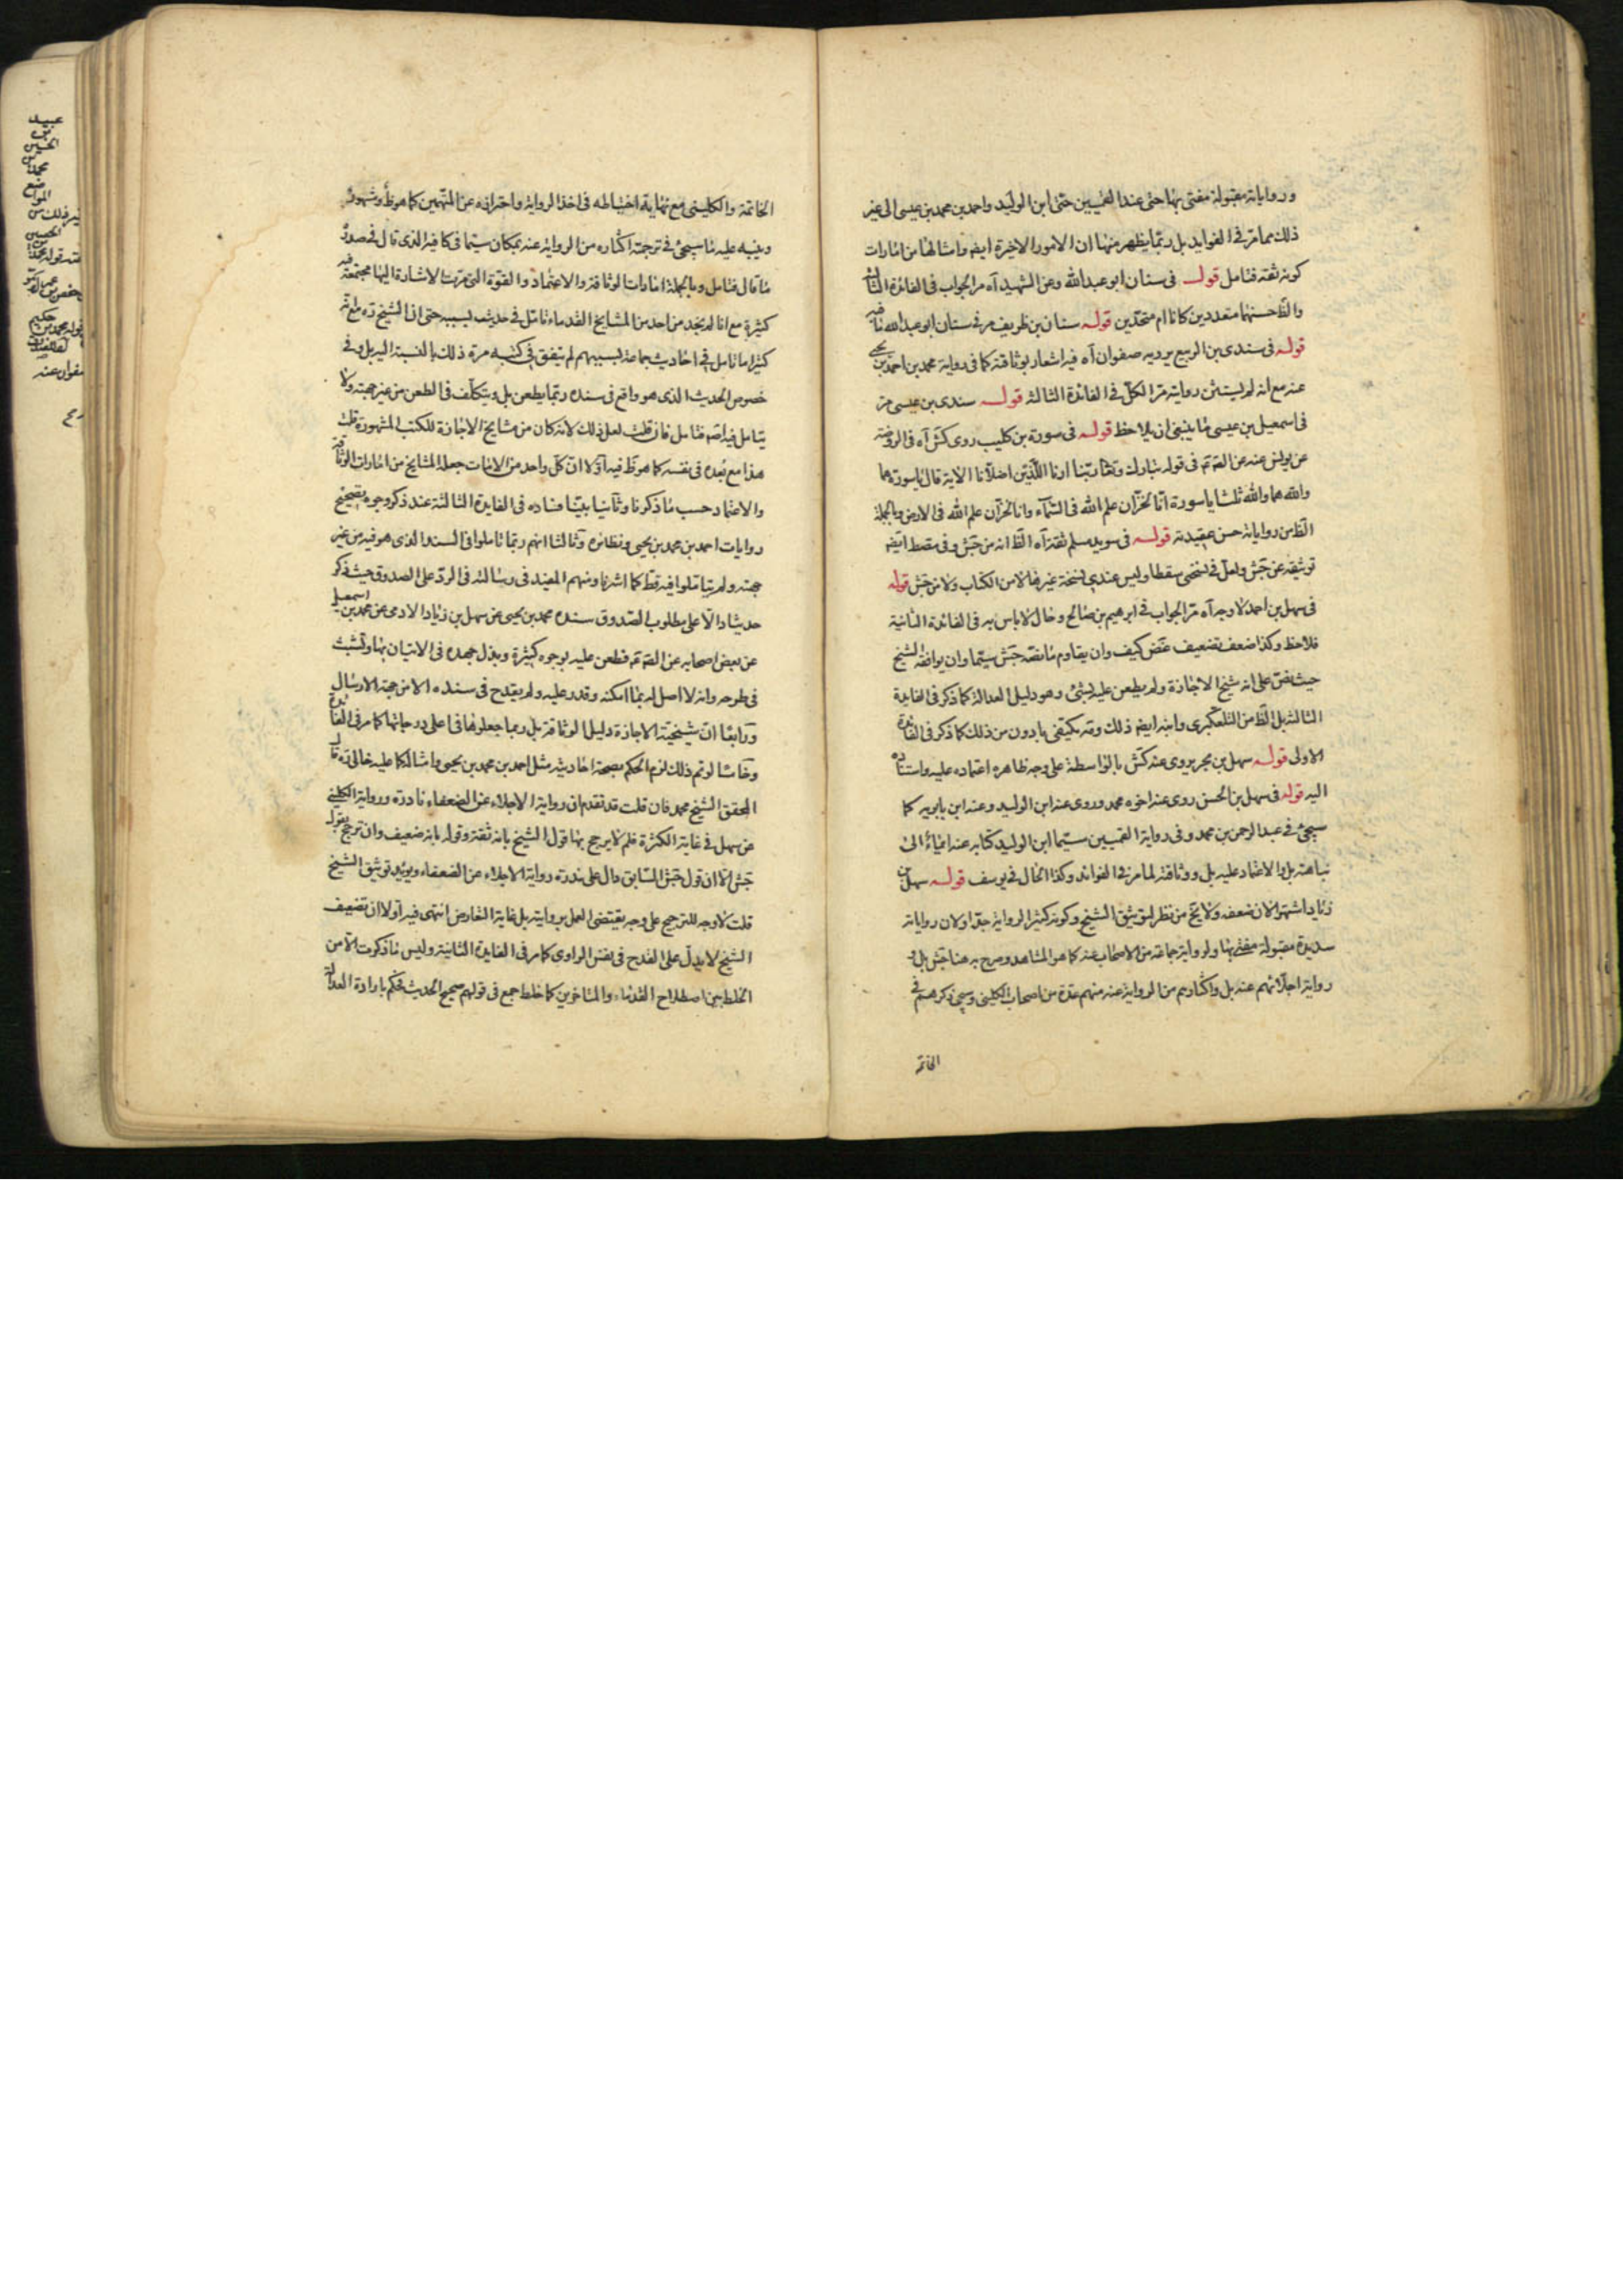 ورواياته مقبولة مفتى بها حتى عند القميين حتى ابن الوليد واحمد بن محمد بن عيسى الى غير
ذلك مما مر في الفوايد بل ربما يظهر منها ان الامور الاخيرة ايضا وامثالها من امارات
كونه ثقة فتامل قوله في سنان ابو عبد الله وعن الشهيد آه مر الجواب في الفائدة
والظ حسنهما متعددين كانا ام متحدين قوله سنان بن ظريف مر في سنان ابو عبد الله
قوله في سندى بن الربيع يرويه صفوان آه فيه اشعار بوثاقته كما في رواية محمد بن احمد بن يحيى
عنه مع انه لم يستثن روايته مر الكل في الفائدة الثالثه قوله سندى بن عيسى مر
في اسمعيل بن عيسى ما ينبغي ان يلاحظ قوله في سورة بن كليب روى كش آه في الروضة
عن يونس عنه عن الصه في قوله تبارك وتعا ربنا ارنا اللذين اضلانا الاية قال يا سورة هما
والله هما والله ثلثا يا سورة انا لخزان علم الله في السماء وانا لخزان علم الله في الارض وبالجملة
الظ من رواياته حسن عقيدته قوله في سويد مسلم ثقة آه الظ انه من جش وفي مصط ايضا
توثيقه عن جش ولعل في نسختى سقطا وليس عندي نسخة غيرها لا من الكتاب ولا من جش قوله
في سهل بن احمد لا وجه آه مر الجواب في ابرهيم بن صالح وخال لا باس به في الفائدة الثانية
فلاحظ وكذا ضعف تضعيف غض كيف وان يقاوم ما نصه جش سيما وان يوافقه الشيخ
حيث نص على انه شيخ الاجازة ولم يطعن عليه بشئ وهو دليل العدالة كما ذكر في الفايدة
الثالثة بل الظ من التلعكبرى وابنه ايضا ذلك وقد يكتفى بادون من ذلك كما ذكر في الفائدة
الاولى قوله سهل بن بحر يروى عنه كش بالواسطة على وجه ظاهره اعتماده عليه واستناده
اليه قوله في سهل بن الحسن روى عنه اخوه محمد وروى عنه ابن الوليد وعنه ابن بابويه كما
سيجئ في عبد الرحمن بن محمد وفي رواية القميين سيما ابن الوليد كتابه عنه ايماء الى
نباهته بل والاعتماد عليه بل ووثاقته لما مر في الفوائد وكذا الحال في يوسف قوله سهل بن
زياد اشتهر الان ضعفه ولا يخ من نظر لتوثيق الشيخ وكونه كثير الرواية جدا ولان رواياته
سديدة مقبولة مفتى بها ولرواية جماعة من الاصحاب عنه كما هو المشاهد وصرح به هنا جش بل و
رواية اجلائهم عنه بل واكثارهم من الرواية عنه منهم عدة من اصحاب الكليني وسيجئ ذكرهم في
الخاتمة
الخاتمة والكليني مع نهاية احتياطه في اخذ الرواية واحترازه عن المتهمين كما هو ظ ومشهور
وينبه عليه ما سيجئ في ترجمته اكثاره من الرواية عنه بمكان سيما في كافيه الذي قال في صدره
ما قال فتامل وبالجملة امارات الوثاقة والاعتماد والقوة التي مرت الاشارة اليها مجتمعة فيه
كثيرة مع انا لم نجد من احد من المشايخ القدماء تامل في حديث بسببه حتى ان الشيخ ره مع انه
كثيرا ما تامل في احاديث جماعة بسببهم لم يتفق في كتبه مرة ذلك بالنسبة اليه بل وفي
خصوص الحديث الذي هو واقع في سنده ربما يطعن بل ويتكلف في الطعن من غير جهته ولا
يتامل فيه اصلا فتامل فان قلت لعل ذلك لانه كان من مشايخ الاجازة للكتب المشهورة قلت
هذا مع بعده في نفسه كما هو ظ فيه اولا ان كل واحد من الامات جعله المشايخ من امارات الوثاقة
والاعتماد حسب ما ذكرنا وثانيا بينا فساده في الفايدة الثالثة عند ذكر وجوه تصحيح
روايات احمد بن محمد بن يحيى ونظائره وثالثا انهم ربما تاملوا في السند الذي هو فيه من غير
جهته ولم يتاملوا فيه قط كما اشرنا ومنهم المفيد في رسالته في الرد على الصدوق حيث ذكر
حديثا دالا على مطلوب الصدوق سنده محمد بن يحيى عن سهل بن زياد الادمى عن محمد بن اسمعيل
عن بعض اصحابه عن الصه فطعن عليه بوجوه كثيرة وبذل جهده في الاتيان بها وتشبث
في طرحه وانه لا اصل له بما امكنه وقدر عليه ولم يقدح في سنده الا من جهة الارسال
ورابعا ان شيخية الاجازة دليل الوثاقة بل ربما جعلوها في اعلى درجاتها كما مر في الفايدة
وخامسا لو تم ذلك لزم الحكم بصحة احاديثه مثل احمد بن محمد بن يحيى وامثاله كما عليه خالى ره قال
المحقق الشيخ محمد فان قلت قد تقدم ان رواية الاجلاء عن الضعفاء نادرة ورواية الكليني
عن سهل في غاية الكثرة فلم لا يرجح بها قول الشيخ بانه ثقة وقوله بانه ضعيف وان ترجح بقول
جش الا ان قول جش السابق دال على ندرة رواية الاجلاء عن الضعفاء ويؤيد توثيق الشيخ
قلت لا وجه للترجيح على وجه يقتضى العمل بروايته بل غاية التعارض انتهى فيه اولا ان تضعيف
الشيخ لا يدل على القدح في نفس الراوى كما مر في الفايدة الثانية وليس ما ذكرت الا من
الخلط بين اصطلاح القدماء والمتاخرين كما خلط جمع في قولهم صحيح الحديث فحكم بارادة العدالة
عبيد
بن
الحسين
محمد
المواضع
غير ذلك من
الحسين
صفوان عنه